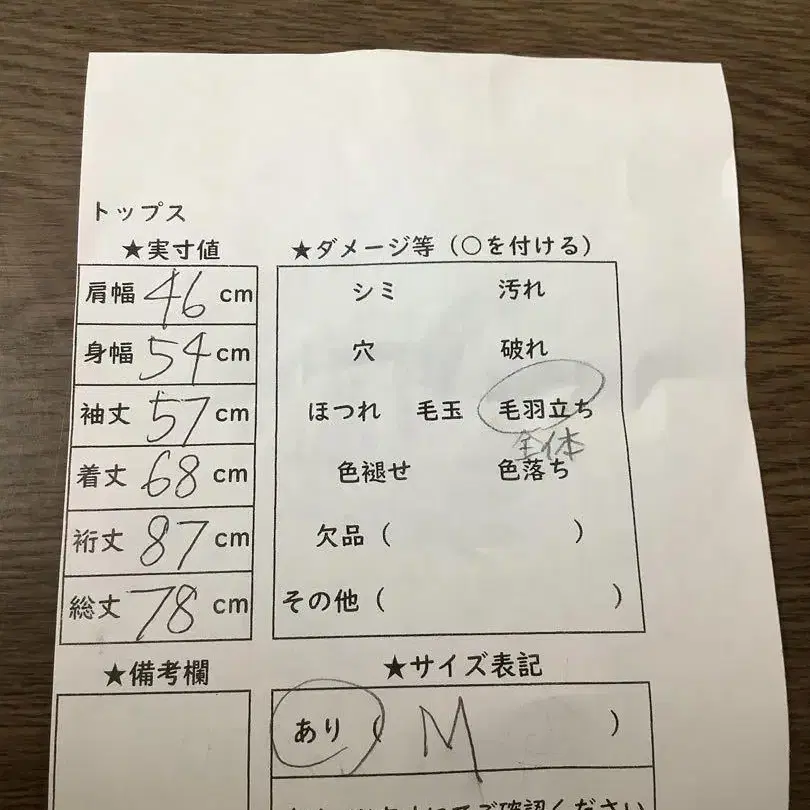 トップス
★実寸値
肩幅 46 cm
身幅 54 cm
袖丈 57 cm
着丈 68 cm
裄丈 87 cm
総丈 78 cm
★ダメージ等（○を付ける）
シミ 汚れ
穴 破れ
ほつれ 毛玉 毛羽立ち
全体
色褪せ 色落ち
欠品（ ）
その他（ ）
★備考欄
★サイズ表記
あり（ M ）
てご確認ください